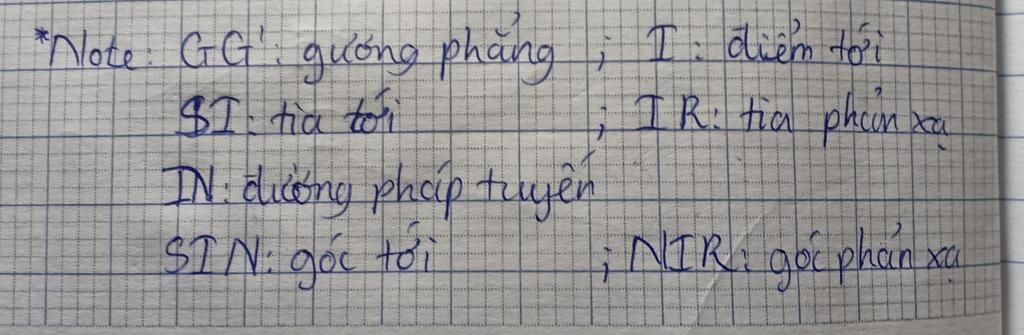 *Note: GG': gương phẳng ; I: điểm tới
SI: tia tới ; IR: tia phản xạ
IN: đường pháp tuyến
SIN: góc tới ; NIR: góc phản xạ